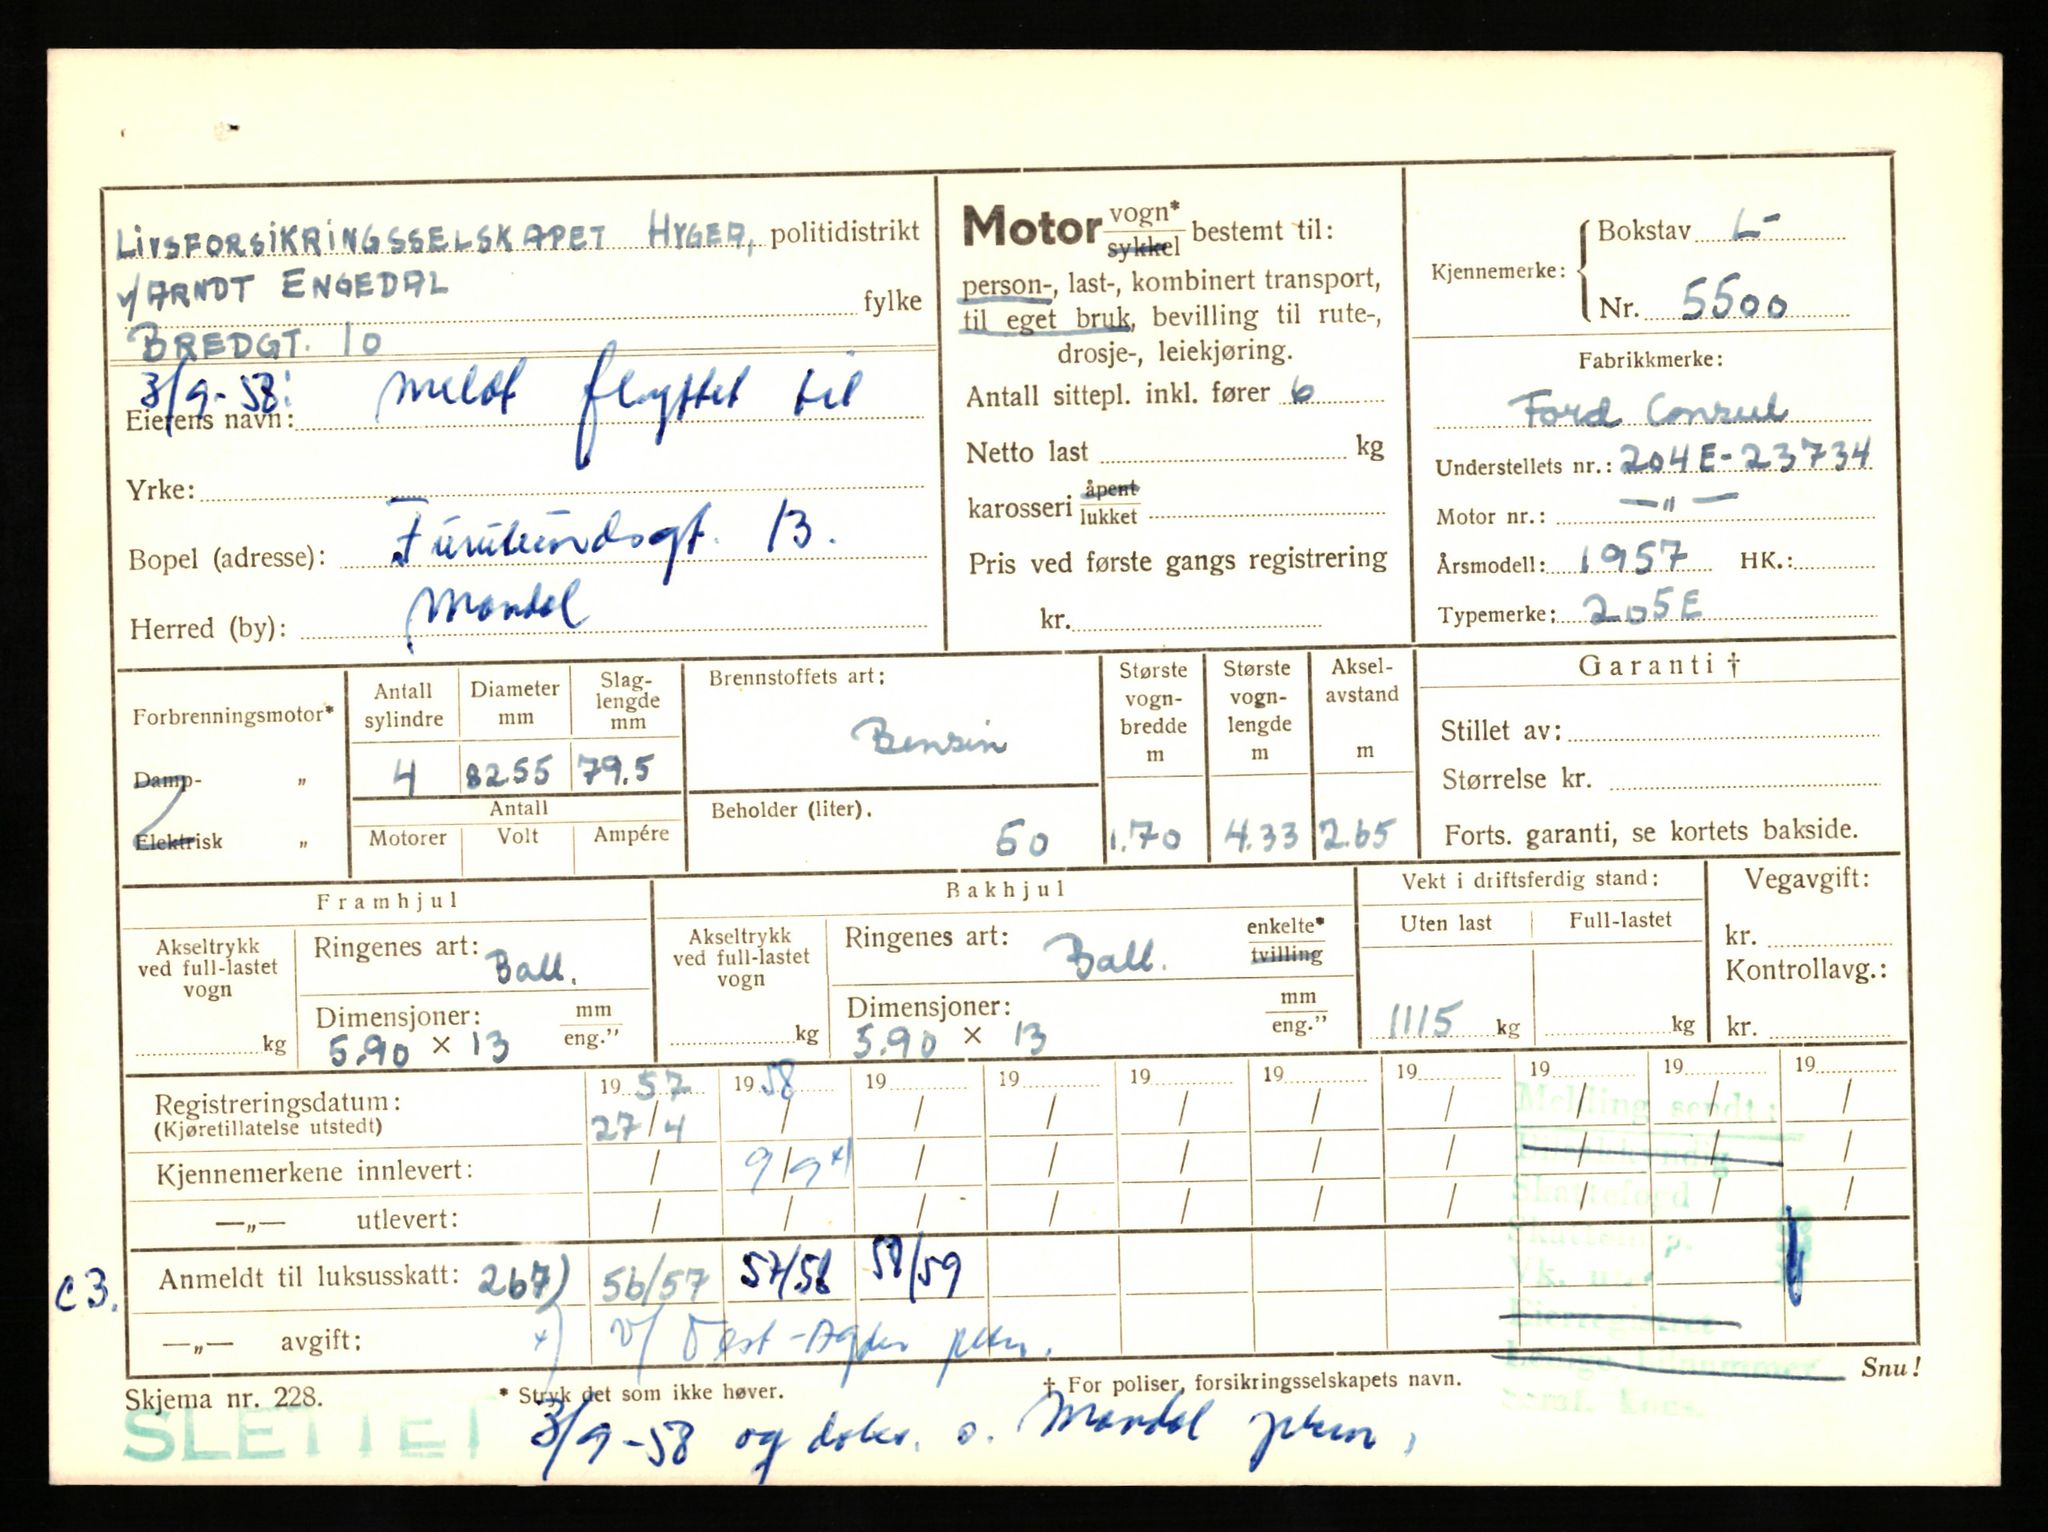 LIVSFORSIKRINGSSELSKAPET HYGEA, politidistrikt
v/ ARNDT ENGEDAL
fylke
BREDGT. 10
3/9-58: meldt flyttet til
Eierens navn:
Yrke:
Furulundsgt. 13.
Bopel (adresse):
Mandal
Herred (by):
Motor vogn* sykkel bestemt til:
person-, last-, kombinert transport,
til eget bruk, bevilling til rute-,
drosje-, leiekjøring.
Antall sittepl. inkl. fører 6
Netto last kg
karosseri åpent lukket
Pris ved første gangs registrering
kr.
Kjennemerke: Bokstav L-
Nr. 5500
Fabrikkmerke:
Ford Consul
Understellets nr.: 204E-23734
Motor nr.: —"—
Årsmodell: 1957 HK.:
Typemerke: 205E
Forbrenningsmotor*
Damp- "
Elektrisk "
Antall sylindre
4
Diameter mm
82.55
Slag-lengde mm
79.5
Antall
Motorer Volt Ampére
Brennstoffets art:
Bensin
Beholder (liter).
50
Største vogn-bredde m
1.70
Største vogn-lengde m
4.33
Aksel-avstand m
2.65
Garanti †
Stillet av:
Størrelse kr.
Forts. garanti, se kortets bakside.
Framhjul
Akseltrykk ved full-lastet vogn
kg
Ringenes art: Ball.
Dimensjoner: mm eng."
5.90 × 13
Bakhjul
Akseltrykk ved full-lastet vogn
kg
Ringenes art: Ball. enkelte* tvilling
Dimensjoner: mm eng."
5.90 × 13
Vekt i driftsferdig stand:
Uten last Full-lastet
1115 kg kg
Vegavgift:
kr.
Kontrollavg.:
kr.
19 57 19 58 19 19 19 19 19 19 19 19
Registreringsdatum:
(Kjøretillatelse utstedt) 27/4 / / / / / / / / /
Kjennemerkene innlevert: / 9/9 x) / / / / / / / /
—„— utlevert: / / / / / / / / / /
Melding sendt:
Bilsakkyndig
Skattefogd
Vk.
Eierregistret
Ledige bilnummer
c3. Anmeldt til luksusskatt: 267) 56/57 57/58 58/59
—„— avgift: x) v/ Vest-Agder pkm.
Snu!
Skjema nr. 228. * Stryk det som ikke høver. † For poliser, forsikringsselskapets navn.
SLETTET 3/9-58 og dokr. s. Mandal pkm,